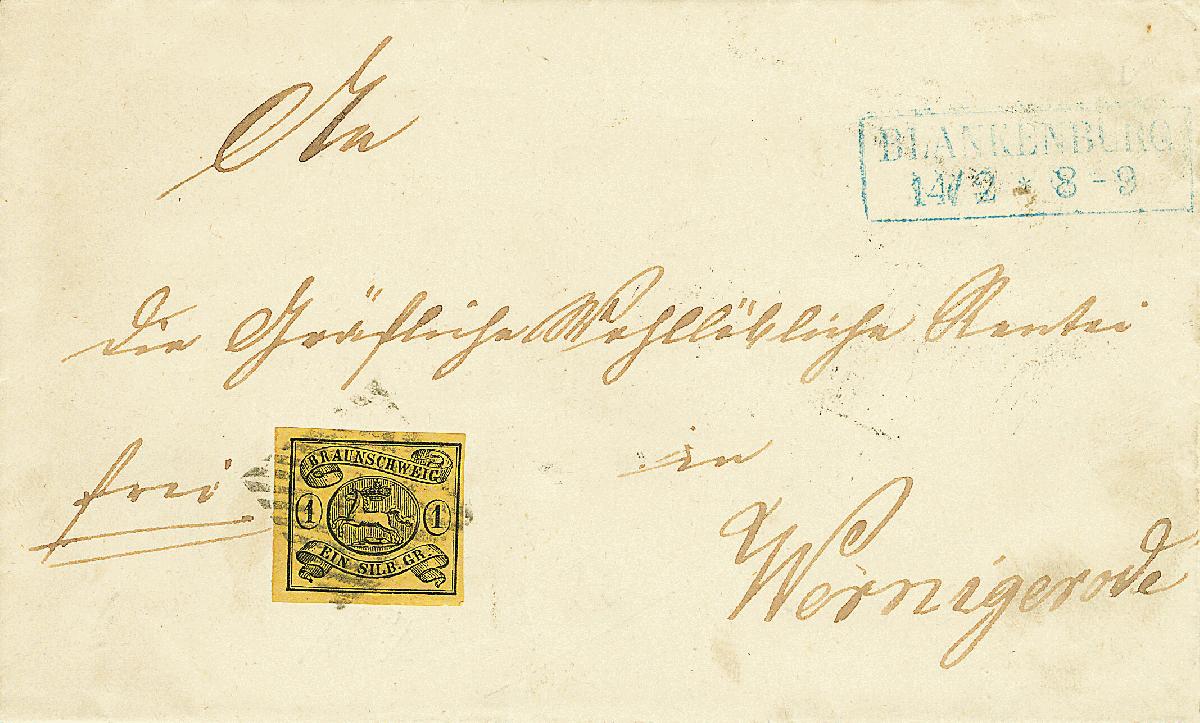 An
BLANKENBURG
14/2 * 8-9
die Gräfliche Wohllöbliche Rentei
frei
in
Wernigerode
BRAUNSCHWEIG
1 1
EIN SILB. GR.